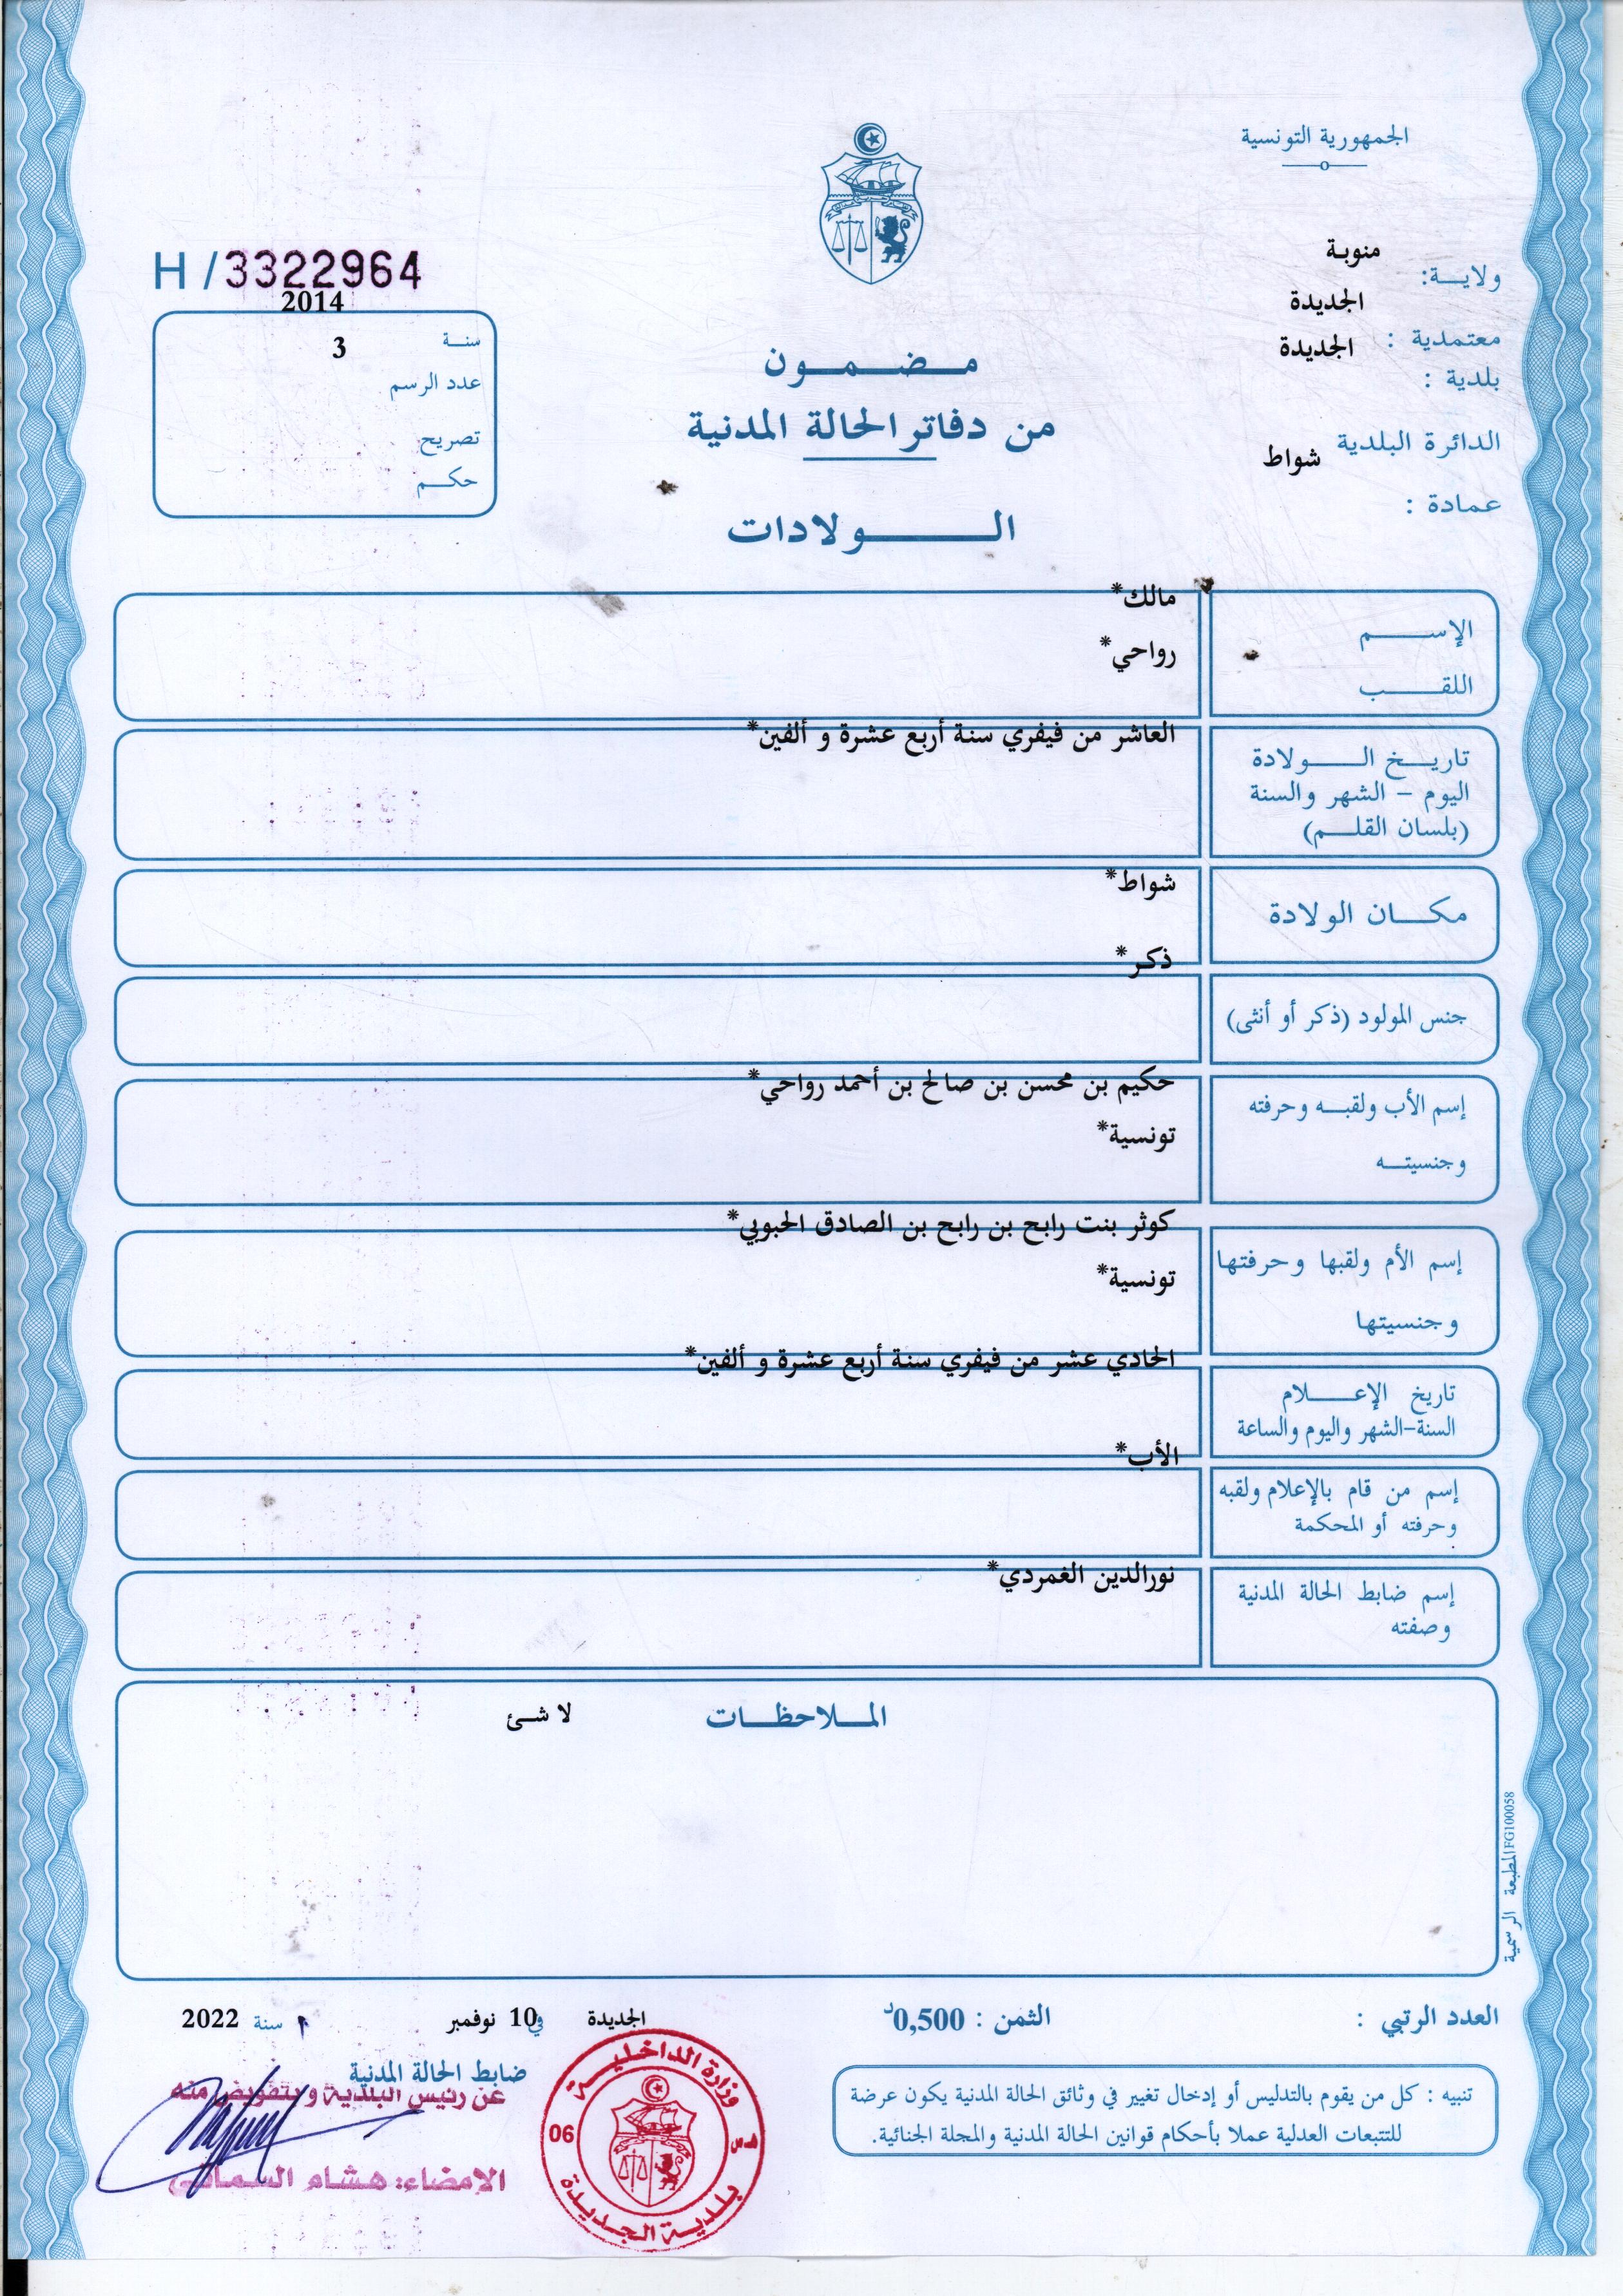 الجمهورية التونسية
ولايـة: منوبـة
معتمدية : الجديدة
بلدية : الجديدة
الدائرة البلدية
عمادة : شواط
H/3322964
سنـة 2014
عدد الرسم 3
تصريح
حكـم
مـضـمـون
من دفاتر الحالة المدنية
الـولادات
الإسـم مالك*
اللقـب رواحي*
تاريـخ الـولادة العاشر من فيفري سنة أربع عشرة و ألفين*
اليوم - الشهر والسنة
(بلسان القلـم)
مكـان الولادة شواط*
جنس المولود (ذكر أو أنثى) ذكـر*
إسم الأب ولقبـه وحرفته حكيم بن محسن بن صالح بن أحمد رواحي*
وجنسيتـه تونسية*
إسم الأم ولقبها وحرفتها كوثر بنت رابح بن رابح بن الصادق الحبوبي*
وجنسيتها تونسية*
تاريخ الإعـلام الحادي عشر من فيفري سنة أربع عشرة و ألفين*
السنة-الشهر واليوم والساعة
إسم من قام بالإعلام ولقبه الأب*
وحرفته أو المحكمة
إسم ضابط الحالة المدنية نورالدين الغمردي*
وصفته
المـلاحظـات لا شـئ
المطبعة الرسمية FG100058
العدد الرتبي :
الثمن : 0,500د
الجديدة في 10 نوفمبر سنة 2022
ضابط الحالة المدنية
عن رئيس البلدية و بتفويض منه
الامضاء: هشام السماتي
وزارة الداخلية
06
بلدية الجديدة
تنبيه : كل من يقوم بالتدليس أو إدخال تغيير في وثائق الحالة المدنية يكون عرضة
للتتبعات العدلية عملا بأحكام قوانين الحالة المدنية والمجلة الجنائية.